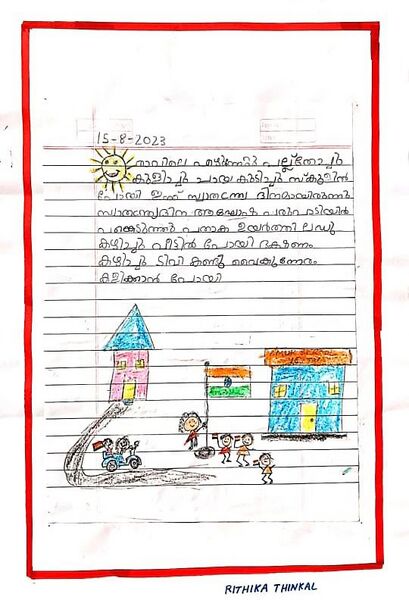 15-8-2023
രാവിലെ എഴുന്നേറ്റു പല്ല് തേച്ചു
കുളിച്ചു ചായ കുടിച്ചു സ്കൂളിൽ
പോയി ഇന്ന് സ്വാതന്ത്ര്യ ദിനമായിരുന്നു
സ്വാതന്ത്ര്യദിന ആഘോഷ പരിപാടിയിൽ
പങ്കെടുത്തു പതാക ഉയർത്തി ലഡു
കഴിച്ചു വീട്ടിൽ പോയി ഭക്ഷണം
കഴിച്ചു ടിവി കണ്ടു വൈകുന്നേരം
കളിക്കാൻ പോയി
RITHIKA THINKAL